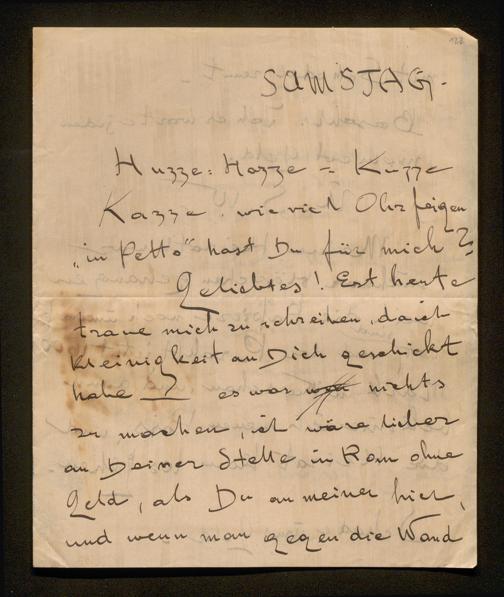 123
SAMSTAG.
Huzze: Hazze = Kuzze
Kazze. wie viel Ohrfeigen
„in Petto“ hast Du für mich?
Geliebtes! Erst heute
traue mich zu schreiben, da ich
Kleinigkeit an Dich geschickt
habe es war nichts
zu machen, ich wäre lieber
an Deiner Stelle in Rom ohne
Geld, als Du an meiner hier,
und wenn man gegen die Wand